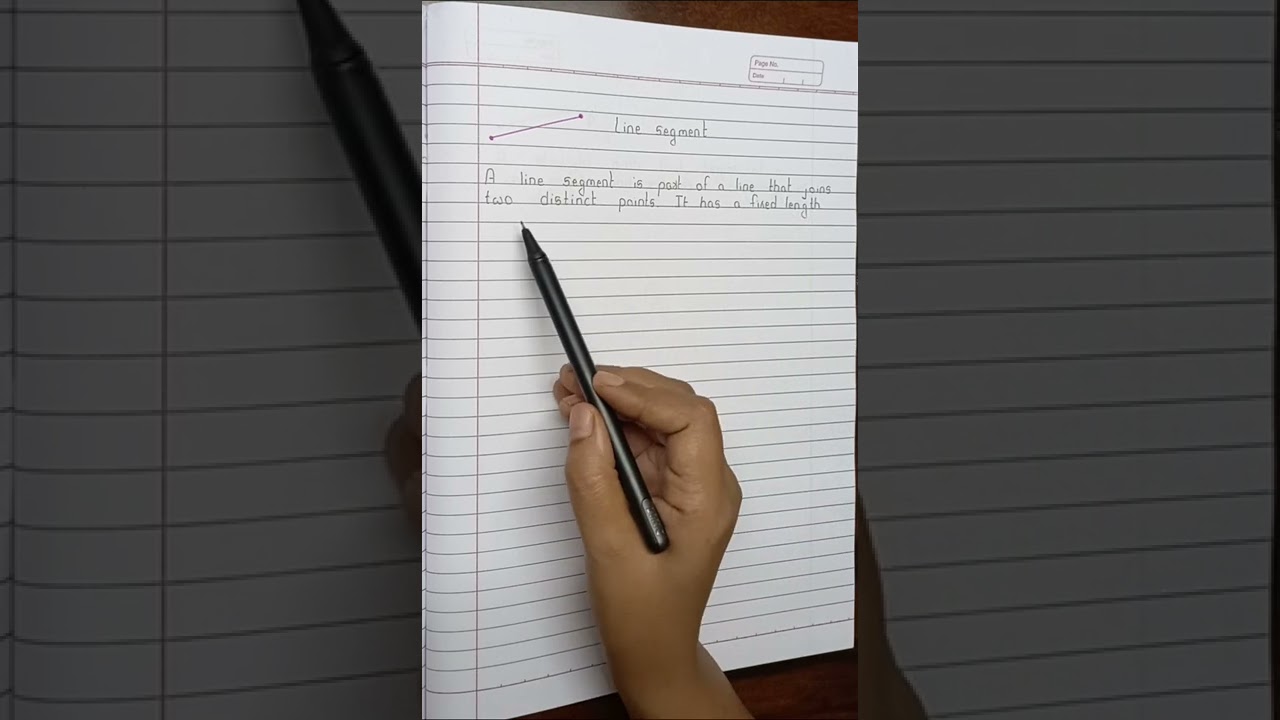 Page No.
Date
Line segment
A line segment is part of a line that joins
two distinct points. It has a fixed length